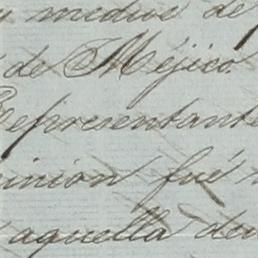 medios de
de Méjico.
Representante
inion fué
aquella de